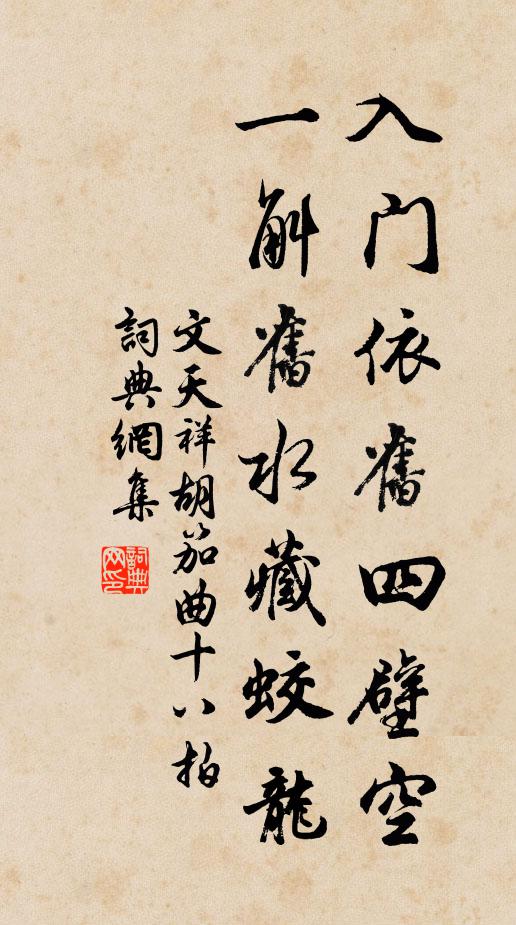 入門依舊四壁空
一斛舊水藏蛟龍
文天祥胡笳曲十八拍
詞典網集
詞典网印